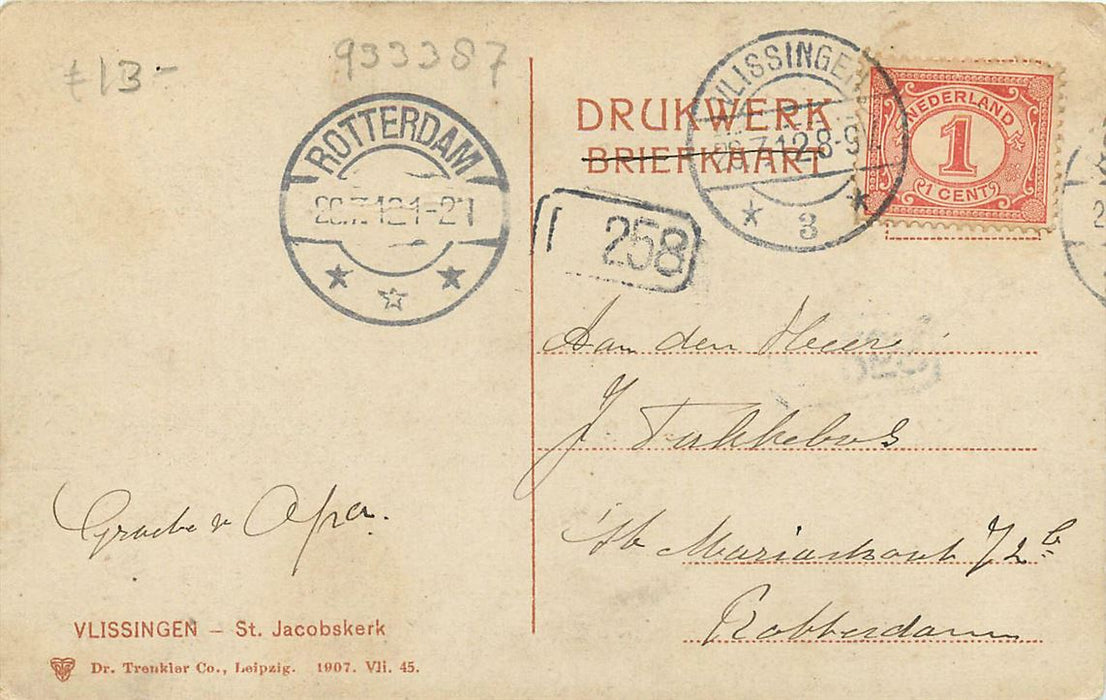 £13-
933387
ROTTERDAM
1-2
DRUKWERK
BRIEFKAART
VLISSINGEN
26.7.12 8-9
3
NEDERLAND
1
1 CENT
258
Aan den Heere
J. Takkebos
Rotterdam
Groete v Opa.
VLISSINGEN – St. Jacobskerk
Dr. Trenkler Co., Leipzig. 1907. Vli. 45.